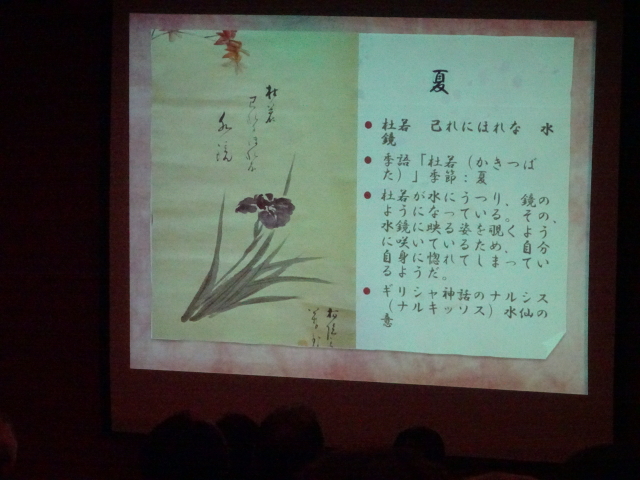 夏
杜若 己れにほれな 水
鏡
季語「杜若（かきつば
た）」季節：夏
杜若が水にうつり、鏡の
ようになっている。その、
水鏡に映る姿を覗くよう
に咲いているため、自分
自身に惚れてしまってい
るようだ。
ギリシャ神話のナルシス
（ナルキッソス）水仙の
意
杜若
水鏡